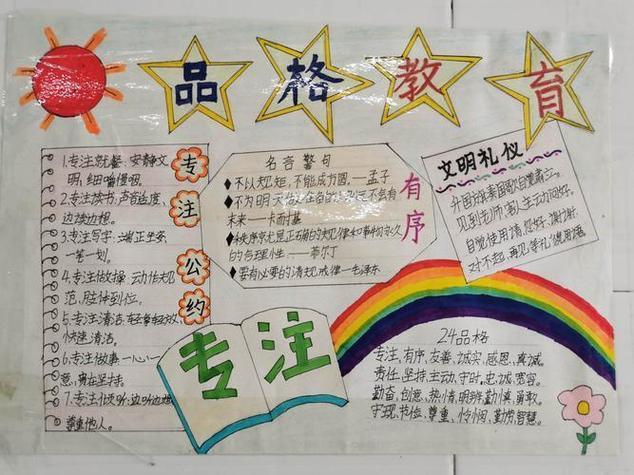 品格教育
专注公约
1.专注就餐、安静文
明,细嚼慢咽。
2.专注读书,声音适度、
边读边想。
3.专注写字:端正坐姿、
一笔一划。
4.专注做操:动作规
范,肢体到位。
5.专注清洁:轻拿轻放、
快速清洁。
6.专注做事:一心一
意,贵在坚持。
7.专注倾听:边听边想
尊重他人。
名言警句
◆不以规矩,不能成方圆。——孟子
◆不为明天做准备的人永远不会有
未来——卡耐基
◆秩序
的合理性——希尔丁
◆要有必要的清规戒律——毛泽东
有序
文明礼仪
升国旗奏国歌自觉肃立。
见到老师客人主动问好。
自觉使用请、您好、谢谢、
对不起、再见等礼貌用语
专注
24品格
专注、有序、友善、诚实、感恩、真诚、
责任、坚持、主动、守时、忠诚、宽容、
勤奋、创意、热情、明辨、勤慎、勇敢、
守规、节俭、尊重、怜悯、勤劳、智慧。